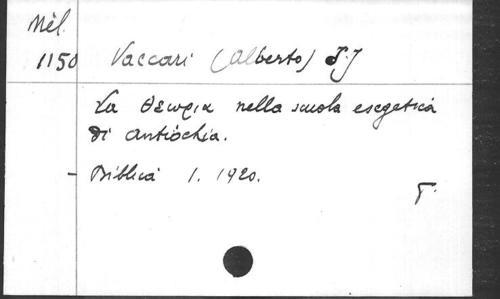 Mél.
1150 Vaccari (Alberto) S.J
La θεωρια nella scuola esegetica
di Antiochia.
- Biblica 1. 1920.
T.